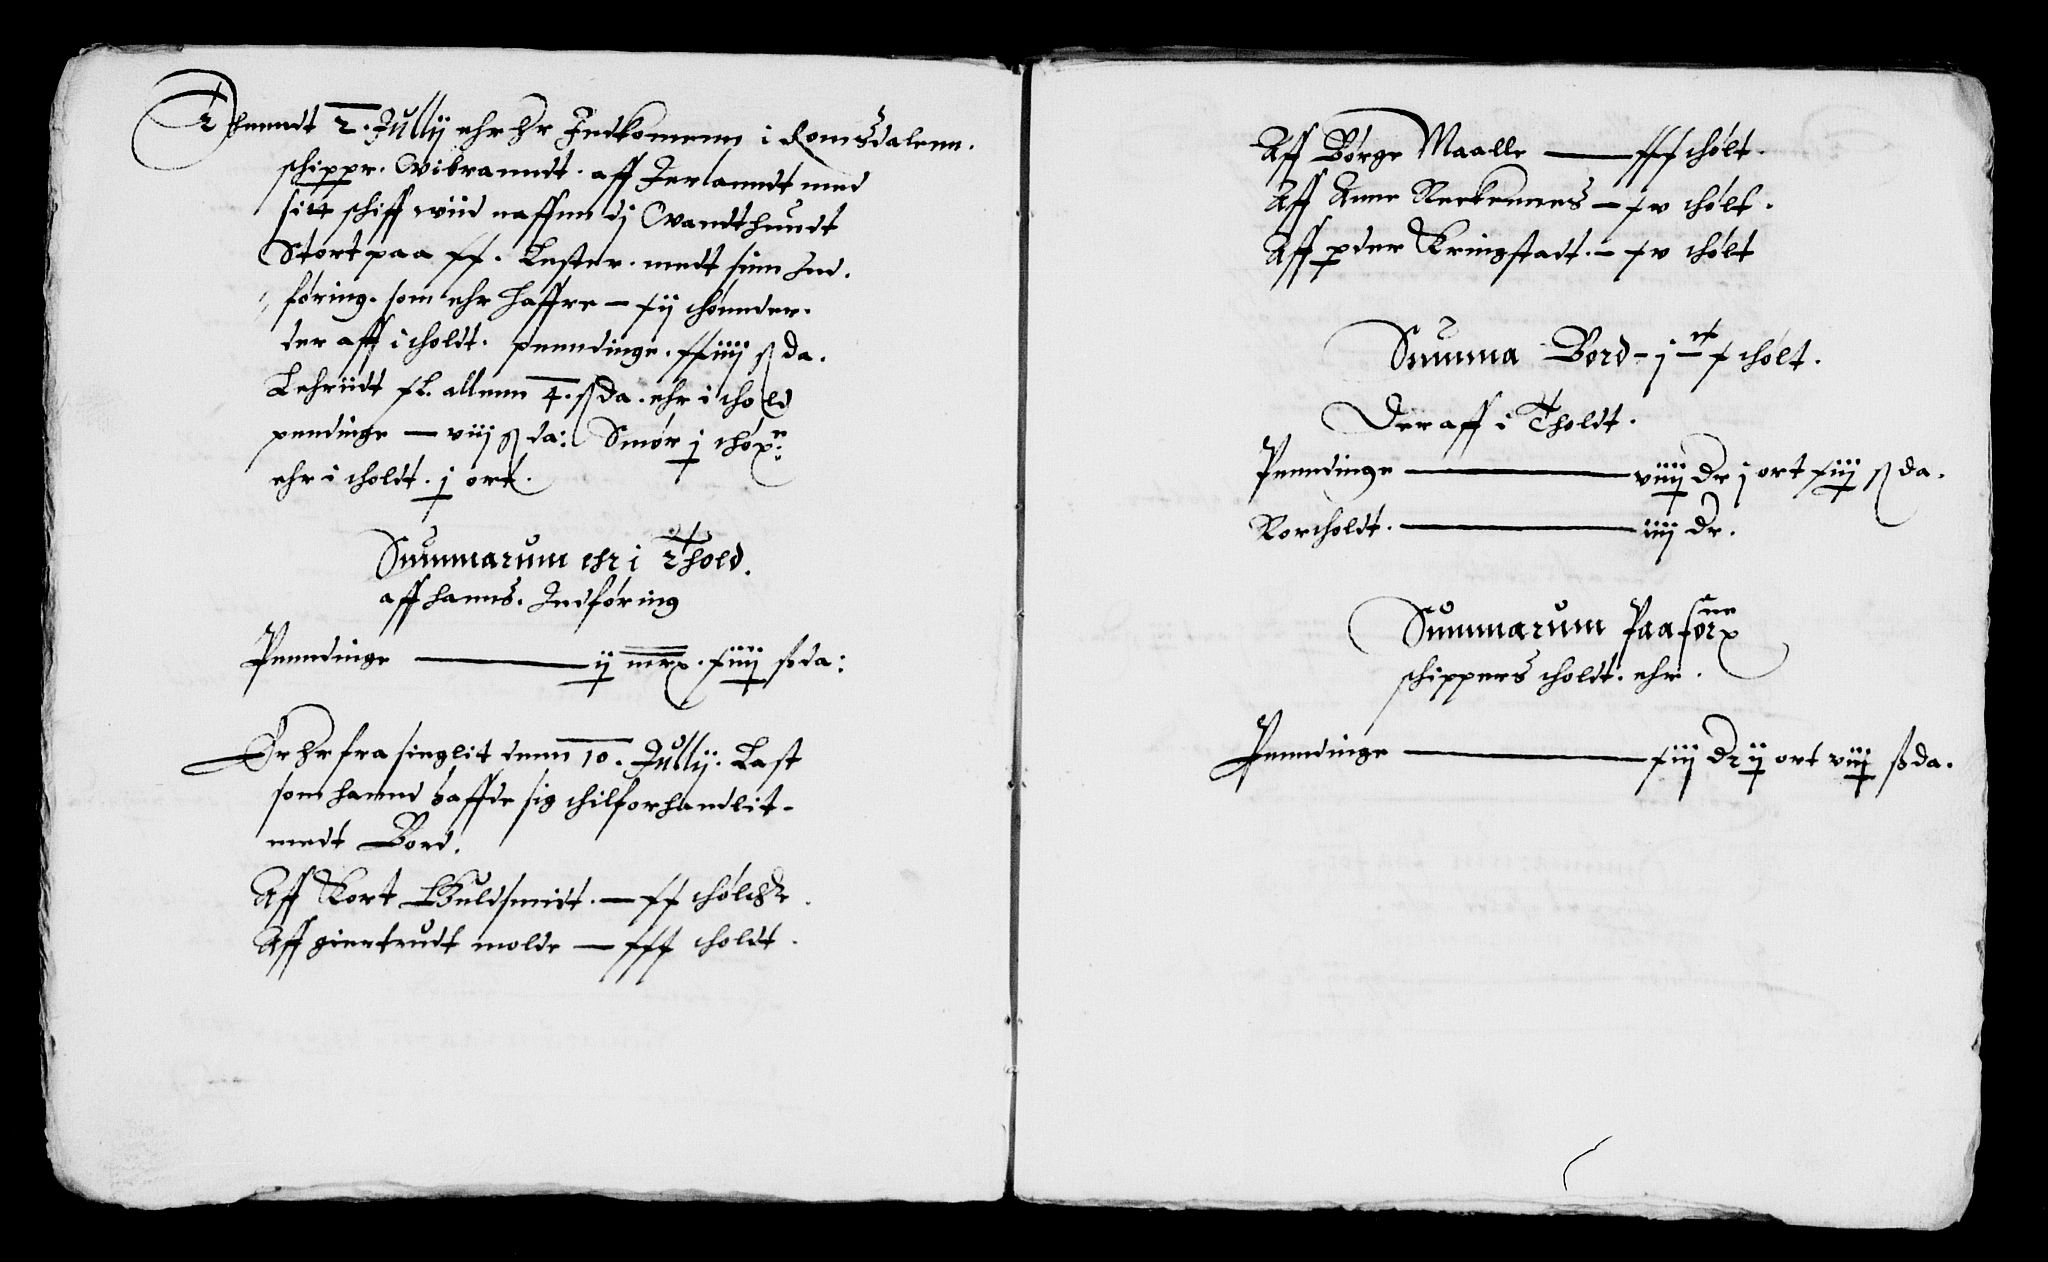 Thenndt 2. Jullij ehr hr Indkomenn i Romsdalenn.
schippr. Wibranndt. aff Jerlanndt med
sitt schiff wiid naffnn dj Wandthundt
Stort paa xx. Lester. medt sinn Ind.
føring. som ehr haffre — xij thønnder.
der aff i tholdt. penndinge. xxiiij ß da.
Lehriidt xl. allenn 4. ß da. ehr i thold
pendinge — viij ß da: Smør j thøx
ehr i tholdt. j ort.
Summarum ehr i Thold.
aff hanns. Indføring
Penndinge — ij mrx. xiiij ß da:
Er hr fra singlit denn 10. Jullij. Last
som hannd haffde sig thilforhandlit
medt Bord.
Aff Kort Guldsmidt. — xx thølthr.
Aff giertrudt molde — xxx tholdt.
Aff Børge Maalle — xxx thølt.
Aff Anne Reekennes — xv thølt.
Aff peder Kringstadt. — xv thølt
Summa Bord — j c x thølt.
Der aff i Tholdt.
Penndinge — viiij dr j ort xiiij ß da.
Rortholdt. — iiij dr.
Summarum Paa forx ne
schippers tholdt. ehr.
Penndinge — xiij dr ij ort viij ß da.